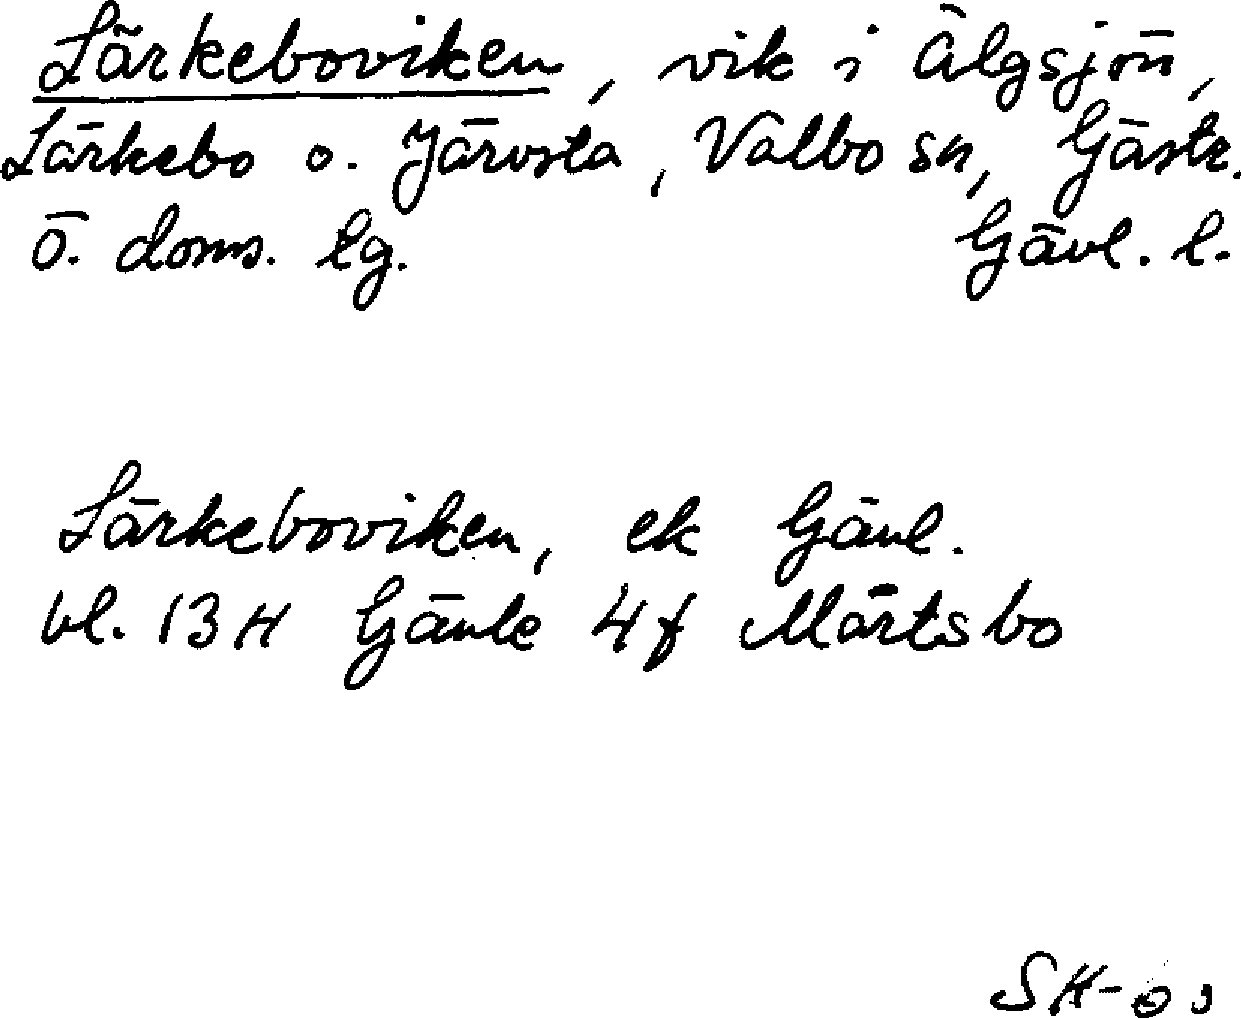 Lärkeboviken, vik i Älgsjön,
Lärkebo o. Järvsta, Valbo sn, Gästr.
ö. doms. lg. Gävl. l.
Lärkeboviken, ek Gävl.
bl. 13H Gävle 4f Mårtsbo